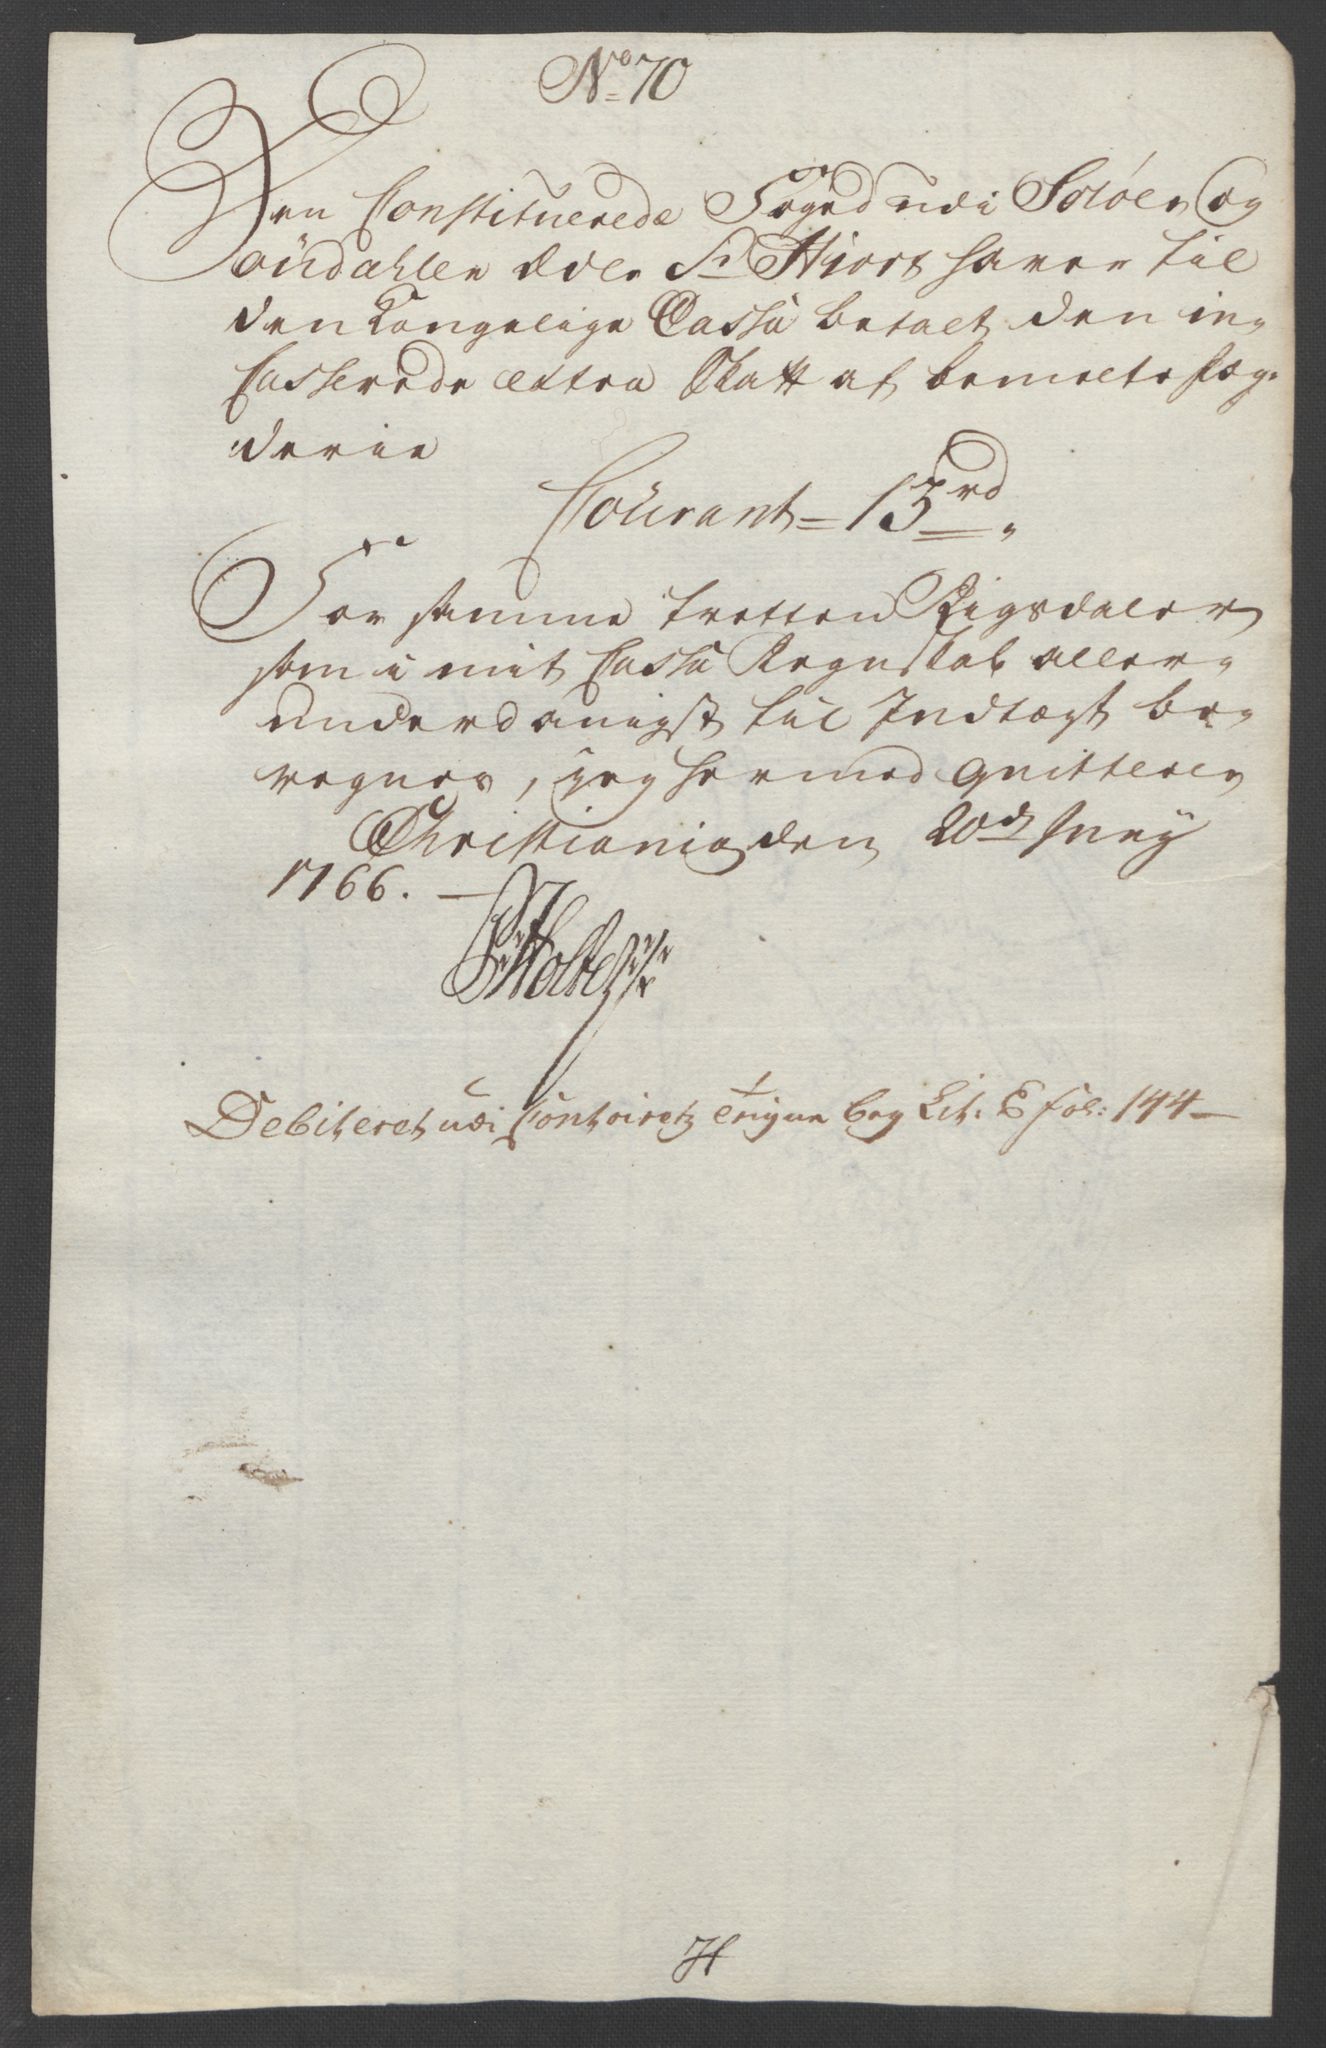 No 70
Den Constituerede Foged udi Soløer og
Oudahlen Ædle Sr Hiort haver til
den Kongelige Cassa betalt den in-
Casserede Extra Skatt af bemelte Fog-
derie
Courant = 13 rd
For samme tretten Rigsdaler
som i mit Cassa Regnskab aller-
underdanigst til Indtægt be-
regnes, jeg hermed qvitterer
Christiania den 20de Juny
1766. —
Holte
Debiteret udi Contoiretz Trigne bog Lit: E fol: 144 —
H